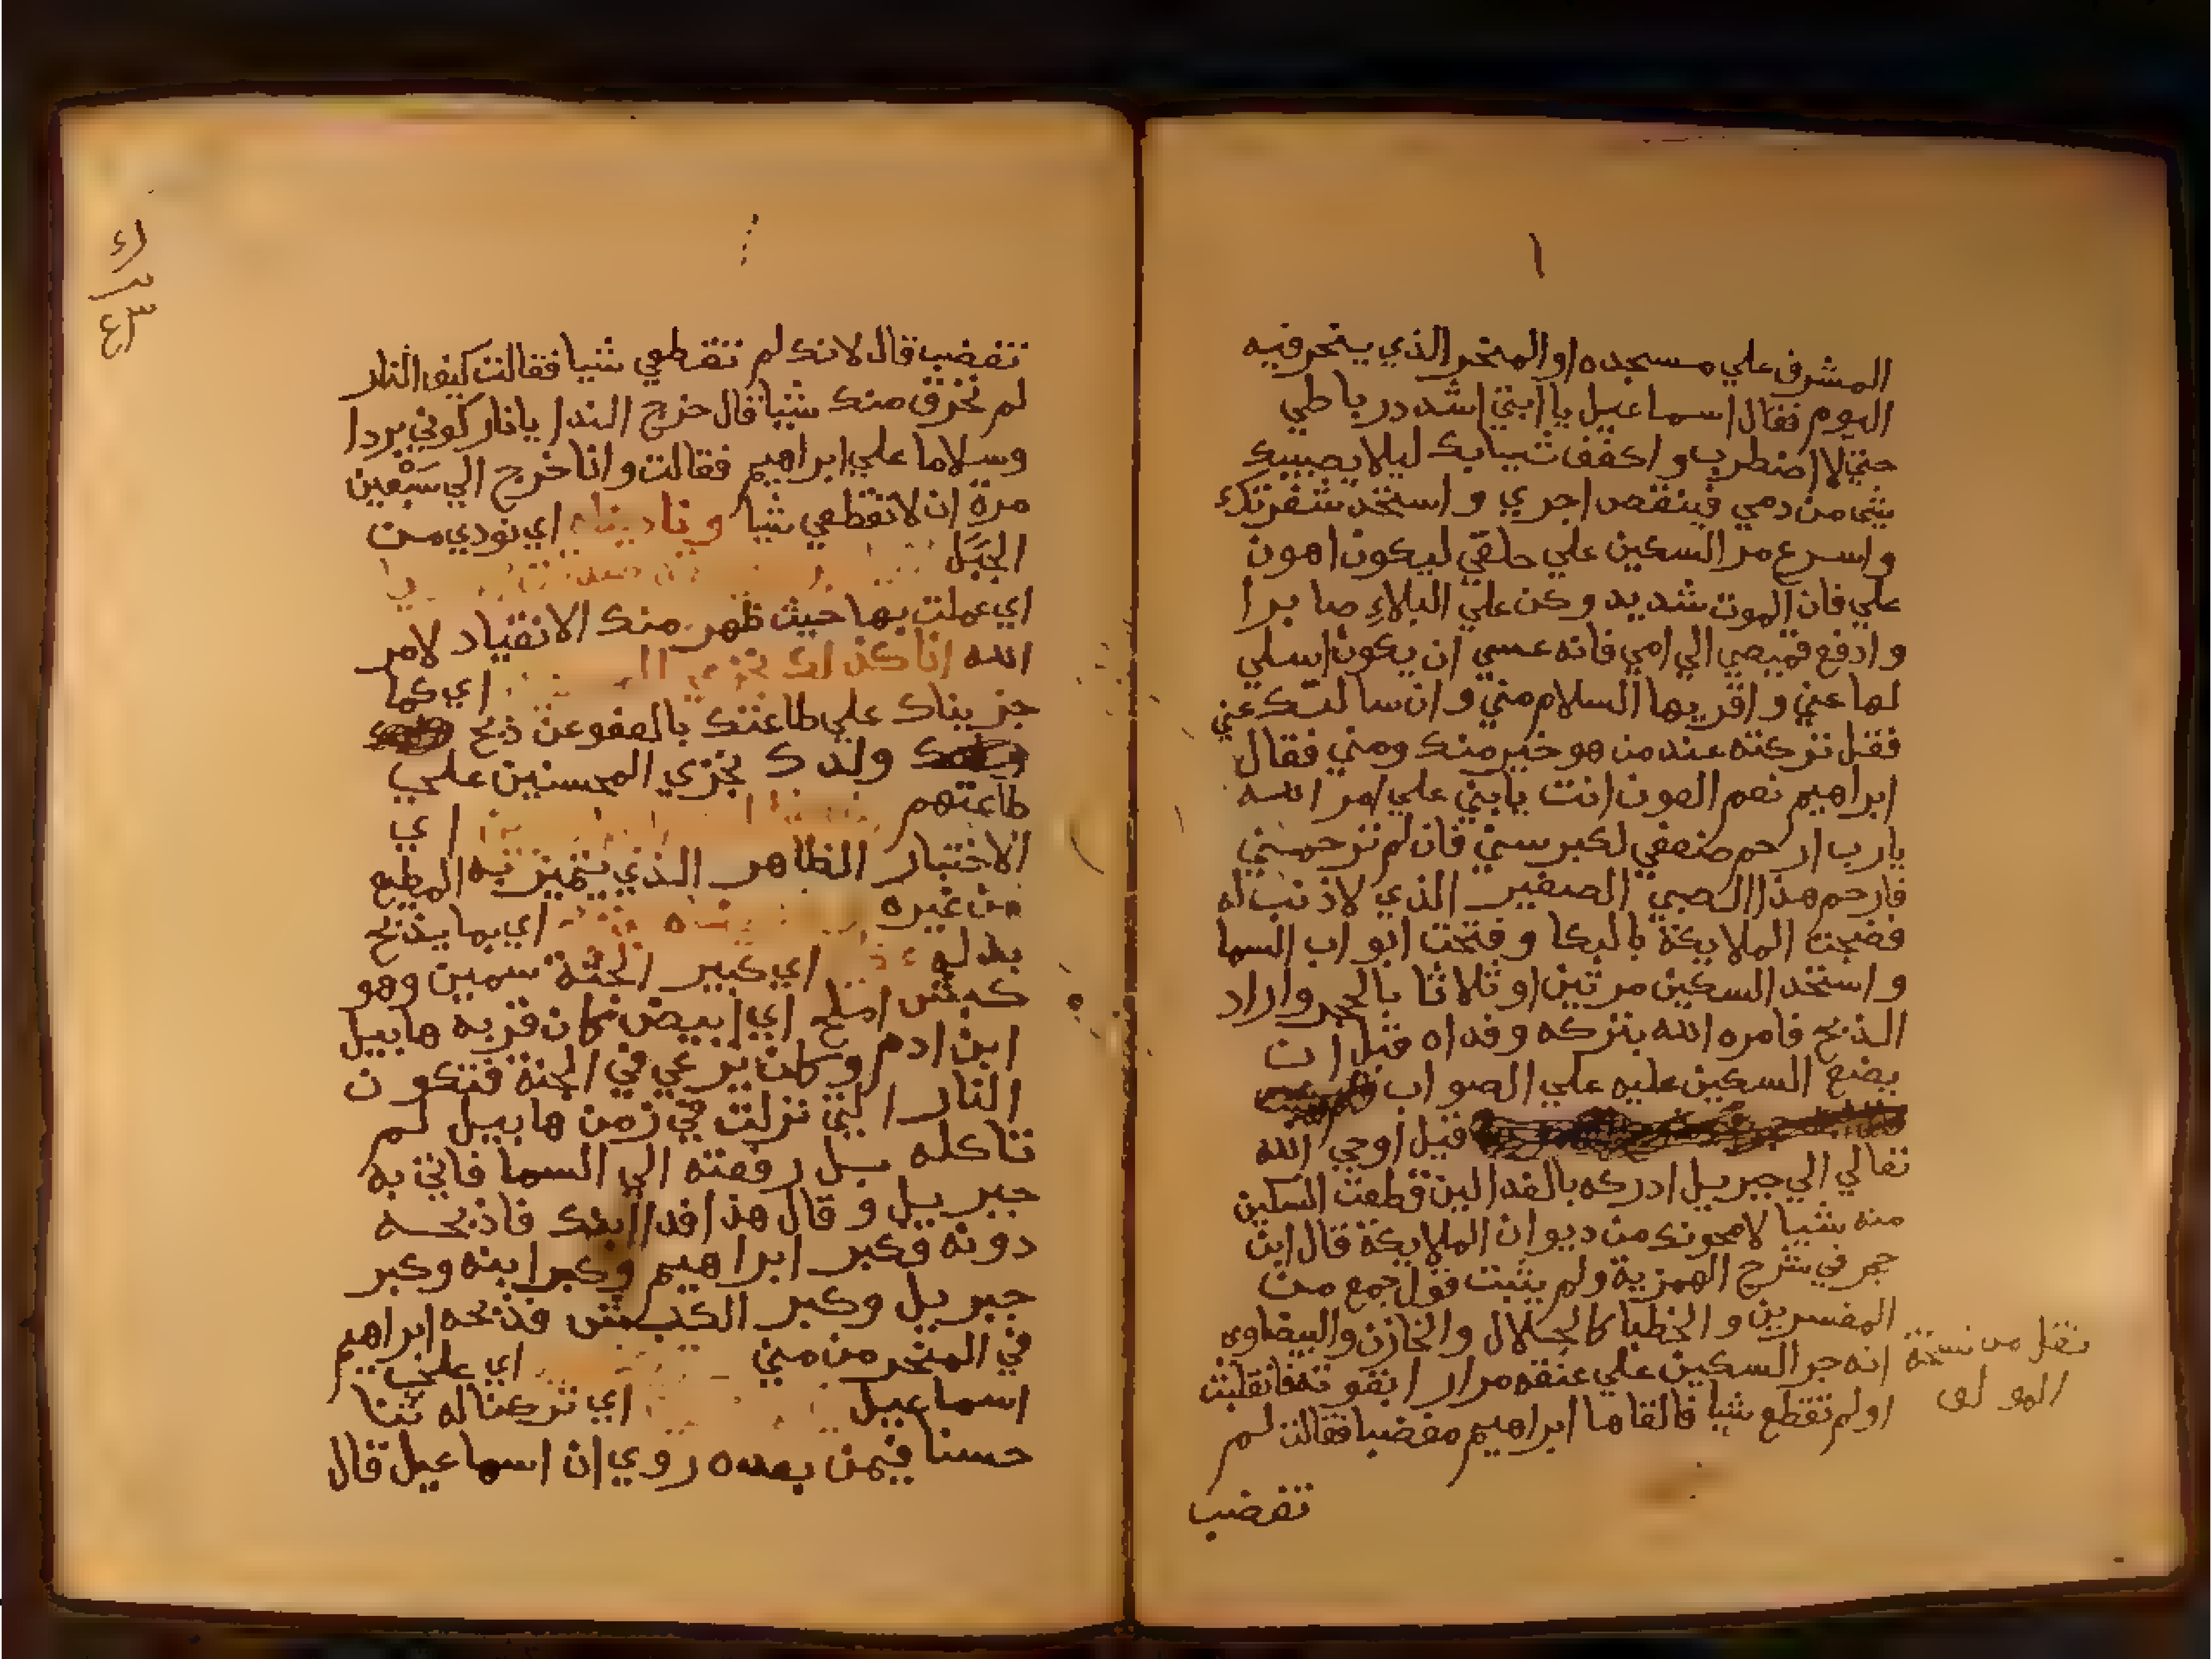 المشرف علي مسجده او المنحر الذي ينحر فيه
اليوم فقال اسماعيل يا ابتي اشدد رباطي
حتي لا اضطرب واكفف ثيابك ليلا يصيبك
شي من دمي فينقص اجري واستحد شفرتك
واسرع مر السكين علي حلقي ليكون اهون
علي فان الموت شديد وكن علي البلاء صابرا
وادفع قميصي الي امي فانه عسي ان يكون اسلي
لها عني واقريها السلام مني وان سالتك عني
فقل تركته عند من هو خير منك ومني فقال
ابراهيم نعم العون انت يا بني علي امر الله
يارب ارحم ضعفي لكبر سني فان لم ترحمني
فارحم هذا الصبي الصغير الذي لا ذنب له
فضجت الملايكة بالبكا وفتحت ابواب السما
واستحد السكين مرتين او ثلاثا بالحجر واراد
الذبح فامره الله بتركه وفداه قبل ان
يضع السكين عليه علي الصواب
قيل اوحي الله
تعالي الي جبريل ادركه بالفدا لين قطعت السكين
منه شيا لامحونك من ديوان الملايكة قال ابن
حجر في شرح الهمزية ولم يثبت قول جمع من
المفسرين والخطبا كالجلال والخازن والبيضاوي
انه جر السكين علي عنقه مرارا بقوته فانقلبت
اولم تقطع شيا فالقاها ابراهيم مغضبا فقالت لم
نقل من نسخة
المولف
تغضب
تغضب قال لانك لم تقطعي شيا فقالت كيف النار
لم تحرق منك شيا قال خرج الندا يانار كوني بردا
وسلاما علي ابراهيم فقالت وانا خرج الي سَبْعين
مرة ان لا تقطعي شيا وناديناه اي نودي من
الجَبَل
اي عملت بها حيث ظهر منك الانقياد لامر
الله انا كذلك نجزي اي كما
جزيناك علي طاعتك بالعفو عن ذبح
ولدك نجزي المحسنين علي
طاعتهم اي
الاختبار الظاهر الذي يتميز به المطيع
من غيره اي بما يذبح
بدله اي كبير الجثة سمين وهو
كبش املح اي ابيض كان قربه هابيل
ابن ادم وكان يرعي في الجنة فتكون
النار التي نزلت في زمن هابيل لم
تاكله بل رفعته الي السما فاتي به
جبريل وقال هذا فدا ابنك فاذبحه
دونه فكبر ابراهيم وكبر ابنه وكبر
جبريل وكبر الكبش فذبحه ابراهيم
في المنحر من مني اي علي
اسماعيل اي تركنا له ثنا
حسنا فيمن بعده روي ان اسماعيل قال